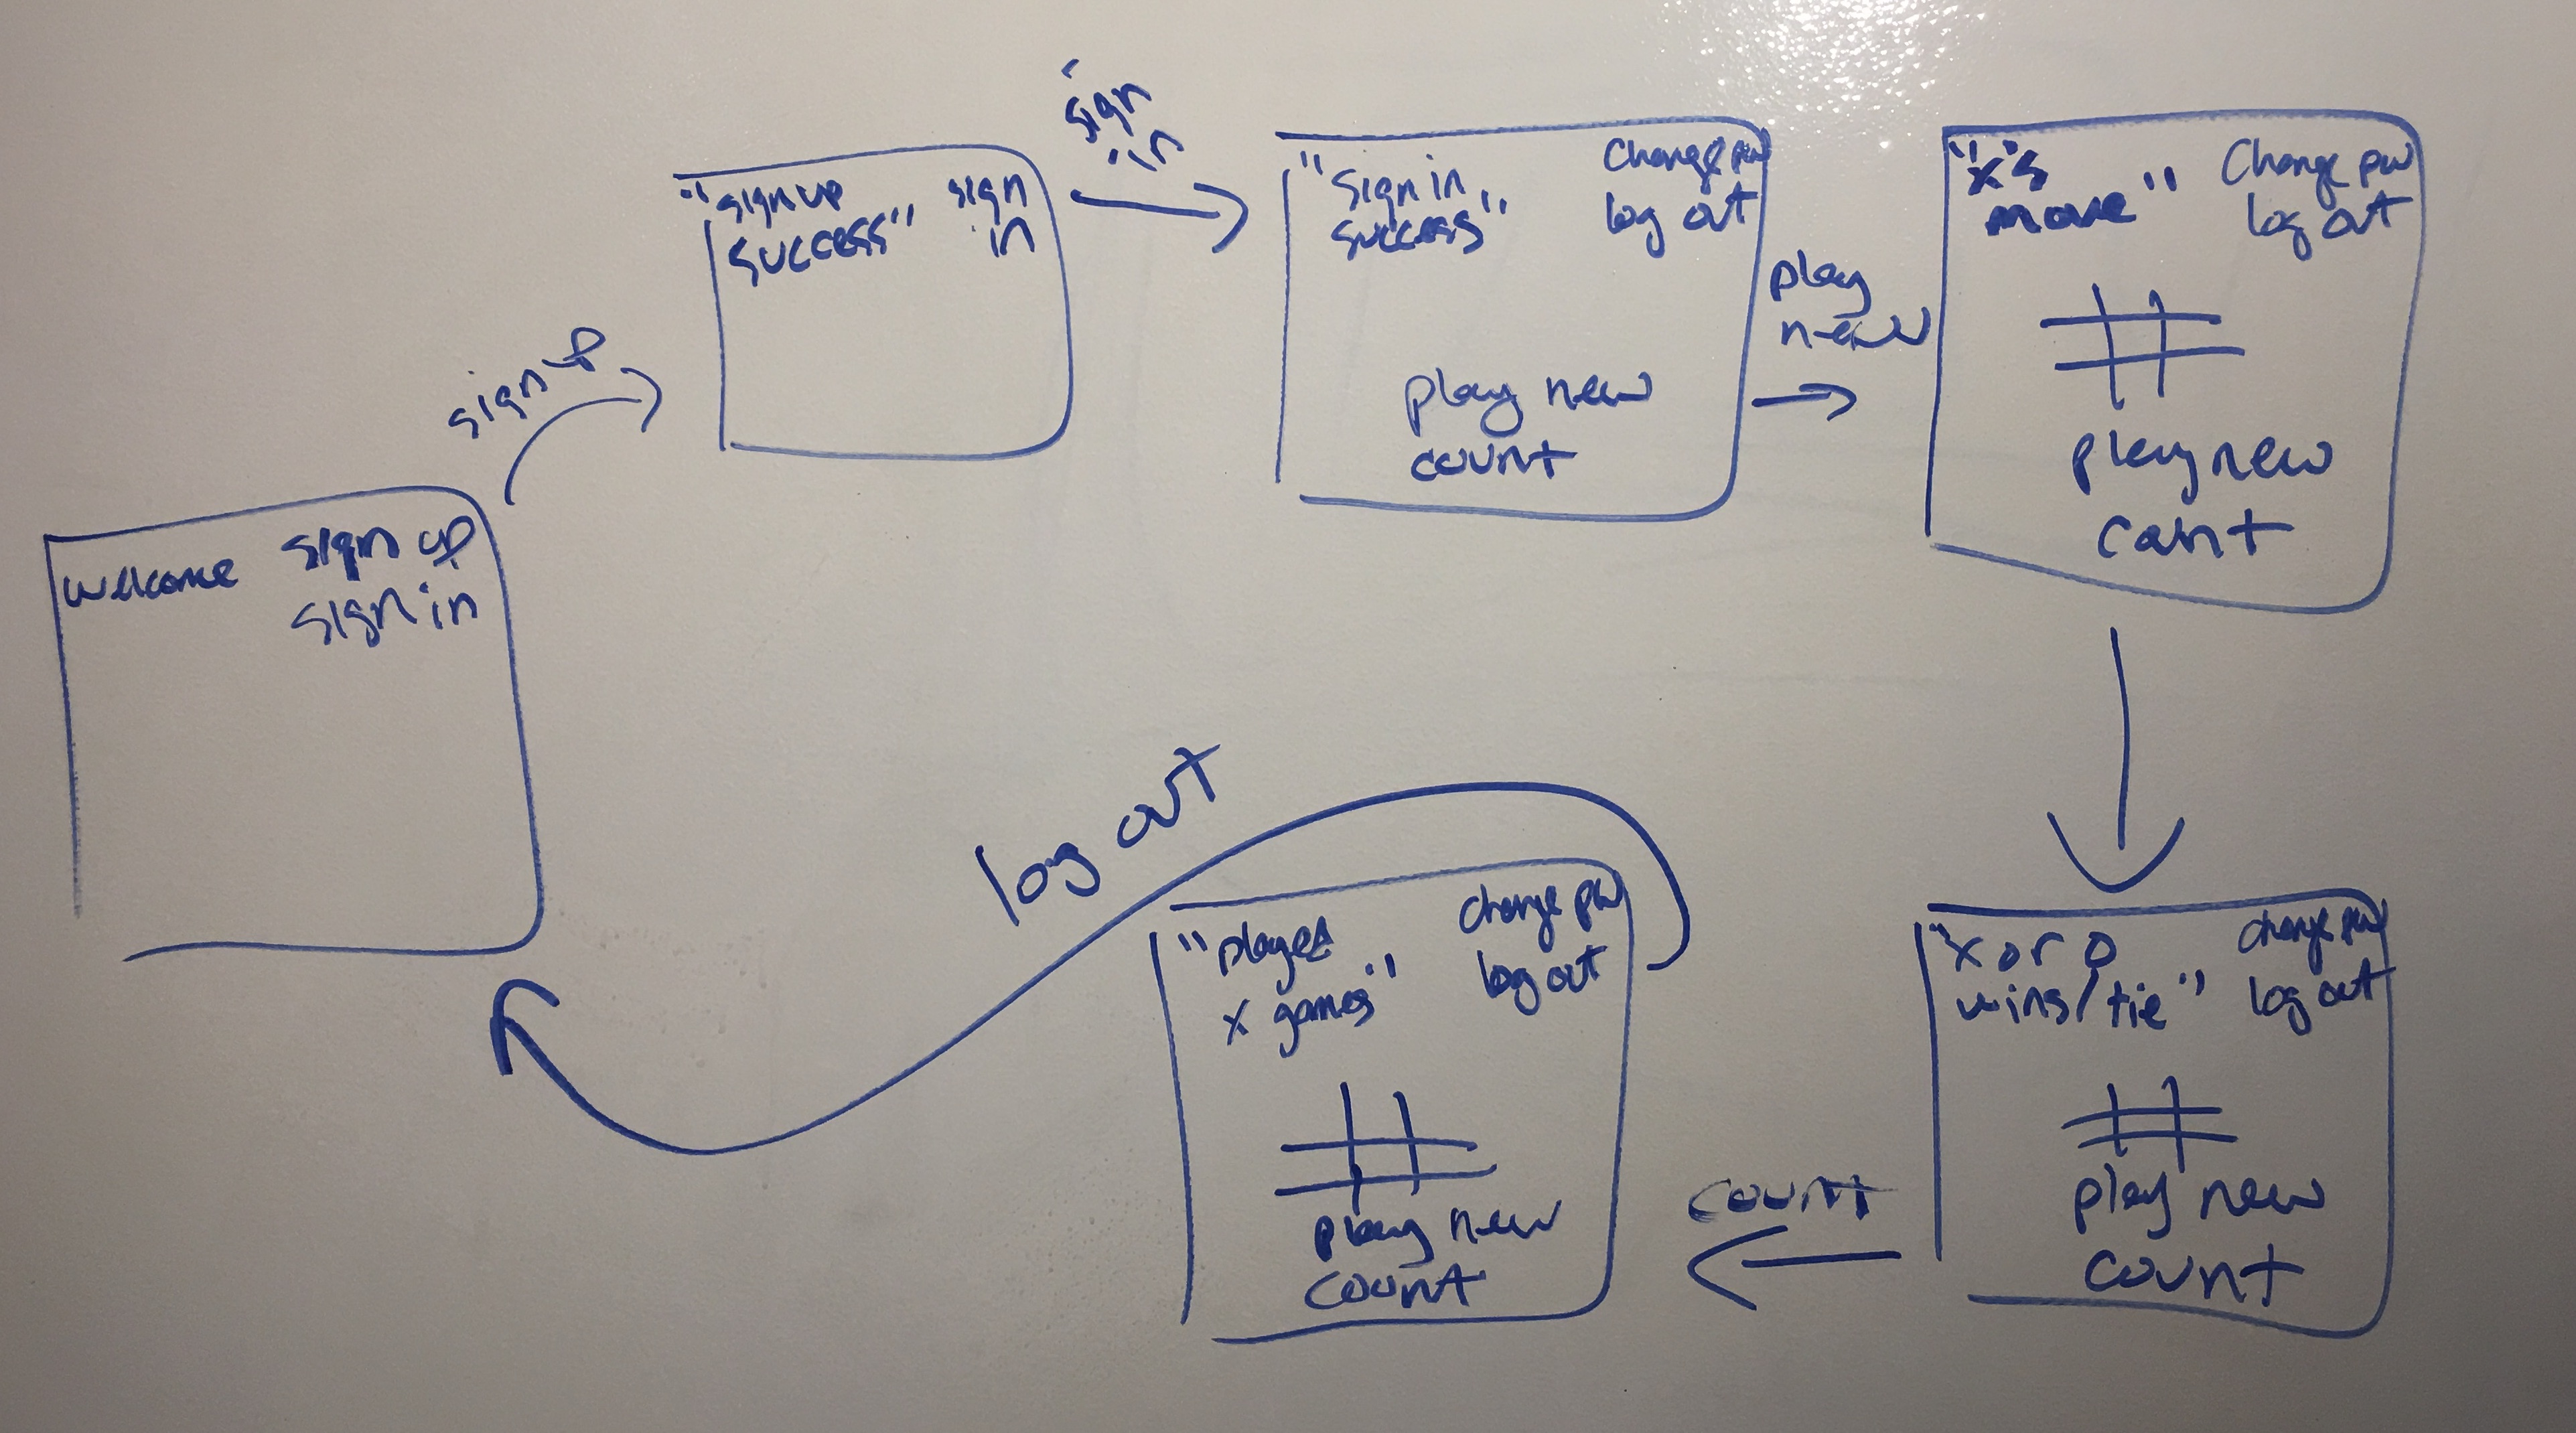 welcome
sign up
sign in
sign up
"sign up
success"
sign
in
sign
in
"sign in
success"
change pw
log out
play new
count
play
new
"x's
move"
change pw
log out
play new
count
"x or o
wins/tie"
change pw
log out
play new
count
count
"played
x games"
change pw
log out
play new
count
log out